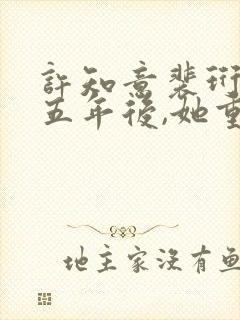 許知意裴珩
五年後,她重
地主家沒有魚